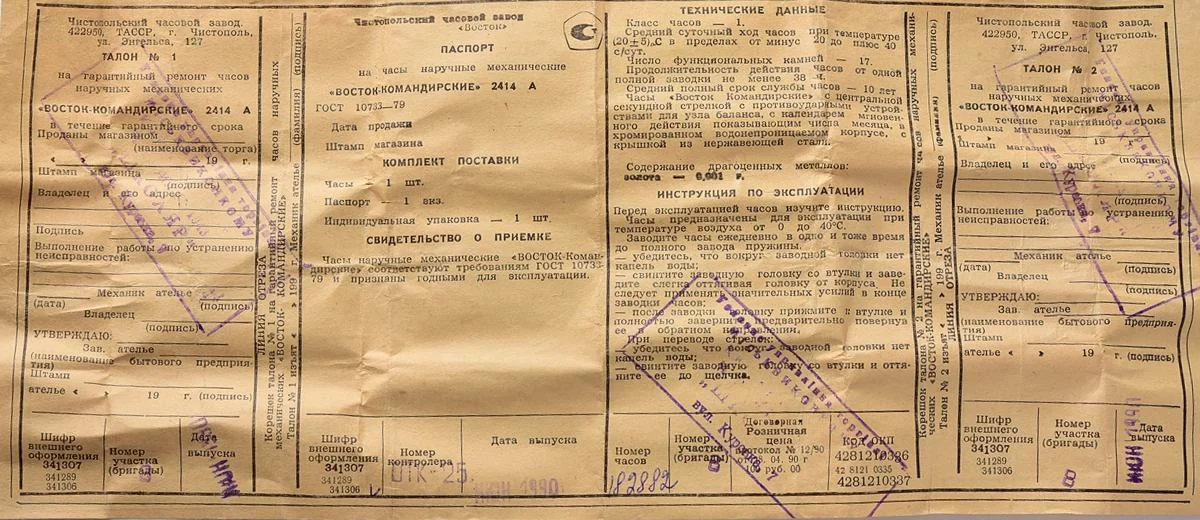 Чистопольский часовой завод.
422950, ТАССР, г. Чистополь,
ул. Энгельса, 127
ТАЛОН № 1
на гарантийный ремонт часов
наручных механических
«ВОСТОК-КОМАНДИРСКИЕ» 2414 А
в течение гарантийного срока
Проданы магазином
(наименование торга)
« » 19 г.
Штамп магазина
(подпись)
Владелец и его адрес
Подпись
Выполнение работы по устранению
неисправностей:
Механик ателье
(дата) (подпись)
Владелец
(подпись)
УТВЕРЖДАЮ:
Зав. ателье
(наименование бытового предприя-
тия)
Штамп
ателье « » 19 г. (подпись)
Шифр
внешнего
оформления
341307
341289
341306
Номер
участка
(бригады)
8
Дата
выпуска
ИЮН 1990
ЛИНИЯ ОТРЕЗА
Корешок талона № 1 на гарантийный ремонт часов наручных
механических «ВОСТОК-КОМАНДИРСКИЕ»
Талон № 1 изъят « » 199 г. Механик ателье (фамилия) (подпись)
Чистопольский часовой завод
«Восток»
ПАСПОРТ
на часы наручные механические
«ВОСТОК-КОМАНДИРСКИЕ» 2414 А
ГОСТ 10733—79
Дата продажи
Штамп магазина
КОМПЛЕКТ ПОСТАВКИ
Часы — 1 шт.
Паспорт — 1 экз.
Индивидуальная упаковка — 1 шт.
СВИДЕТЕЛЬСТВО О ПРИЕМКЕ
Часы наручные механические «ВОСТОК-Коман-
дирские» соответствуют требованиям ГОСТ 10733-
79 и признаны годными для эксплуатации.
Шифр
внешнего
оформления
341307
341289
341306
Номер
контролера
ОТК-25
Дата выпуска
ИЮН 1990
ТЕХНИЧЕСКИЕ ДАННЫЕ
Класс часов — 1.
Средний суточный ход часов при температуре
(20±5)°С в пределах от минус 20 до плюс 40
с/сут.
Число функциональных камней — 17.
Продолжительность действия часов от одной
полной заводки не менее 38 ч.
Средний полный срок службы часов — 10 лет
Часы «Восток Командирские» с центральной
секундной стрелкой с противоударным устрой-
ствами для узла баланса, с календарем мгновен-
ного действия показывающим числа месяца, в
хромированном водонепроницаемом корпусе, с
крышкой из нержавеющей стали.
Содержание драгоценных металлов:
золота — 0,001 г.
ИНСТРУКЦИЯ ПО ЭКСПЛУАТАЦИИ
Перед эксплуатацией часов изучите инструкцию.
Часы предназначены для эксплуатации при
температуре воздуха от 0 до 40°С.
Заводите часы ежедневно в одно и тоже время
до полного завода пружины.
— убедитесь, что вокруг заводной головки нет
капель воды;
— свинтите заводную головку со втулки и заве-
дите слегка оттягивая головку от корпуса Не
следует применять значительных усилий в конце
заводки часов;
— после заводки головку прижмите к втулке и
полностью заверните предварительно повернув
ее в обратном направлении.
При переводе стрелок:
— убедитесь что вокруг заводной головки нет
капель воды;
— свинтите заводную головку со втулки и оття-
ните ее до щелчка.
Номер
часов
182882
Номер
участка
(бригады)
8
Договорная
Розничная
цена
Протокол № 12/90
04. 90 г
руб. 00
КОД ОКП
4281210326
42 8121 0335
4281210337
вул. Курська, 7
Корешок талона № 2 на гарантийный ремонт часов наручных механи-
ческих «ВОСТОК-КОМАНДИРСКИЕ»
Талон № 2 изъят « » 199 г. Механик ателье (фамилия) (подпись)
ЛИНИЯ ОТРЕЗА
Чистопольский часовой завод.
422950, ТАССР, г. Чистополь.
ул. Энгельса, 127
ТАЛОН № 2
на гарантийный ремонт часов
наручных механических
«ВОСТОК-КОМАНДИРСКИЕ» 2414 А
в течение гарантийного срока
Проданы магазином
« » 19 г.
Штамп магазина
(подпись)
Владелец и его адрес
Выполнение работы по устранению
неисправностей:
Механик ателье
(дата) (подпись)
Владелец
(подпись)
УТВЕРЖДАЮ:
Зав. ателье
(наименование бытового предприя-
тия)
ателье « » 19 г. (подпись)
Шифр
внешнего
оформления
341307
341289
341306
Номер
участка
(бригады)
8
Дата
выпуска
ИЮН 1990